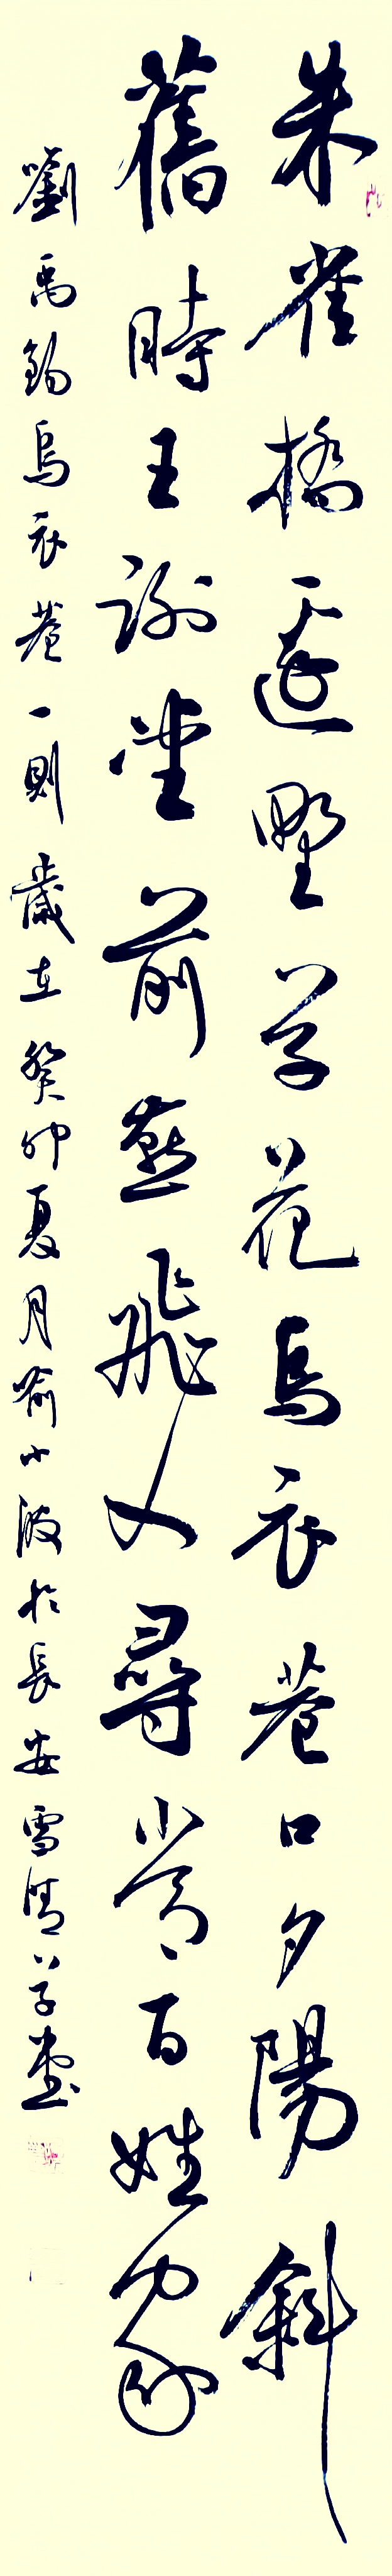 朱雀橋邊野草花烏衣巷口夕陽斜
舊時王謝堂前燕飛入尋常百姓家
劉禹錫烏衣巷一則歲在癸卯夏月喻小波於長安雪清草堂